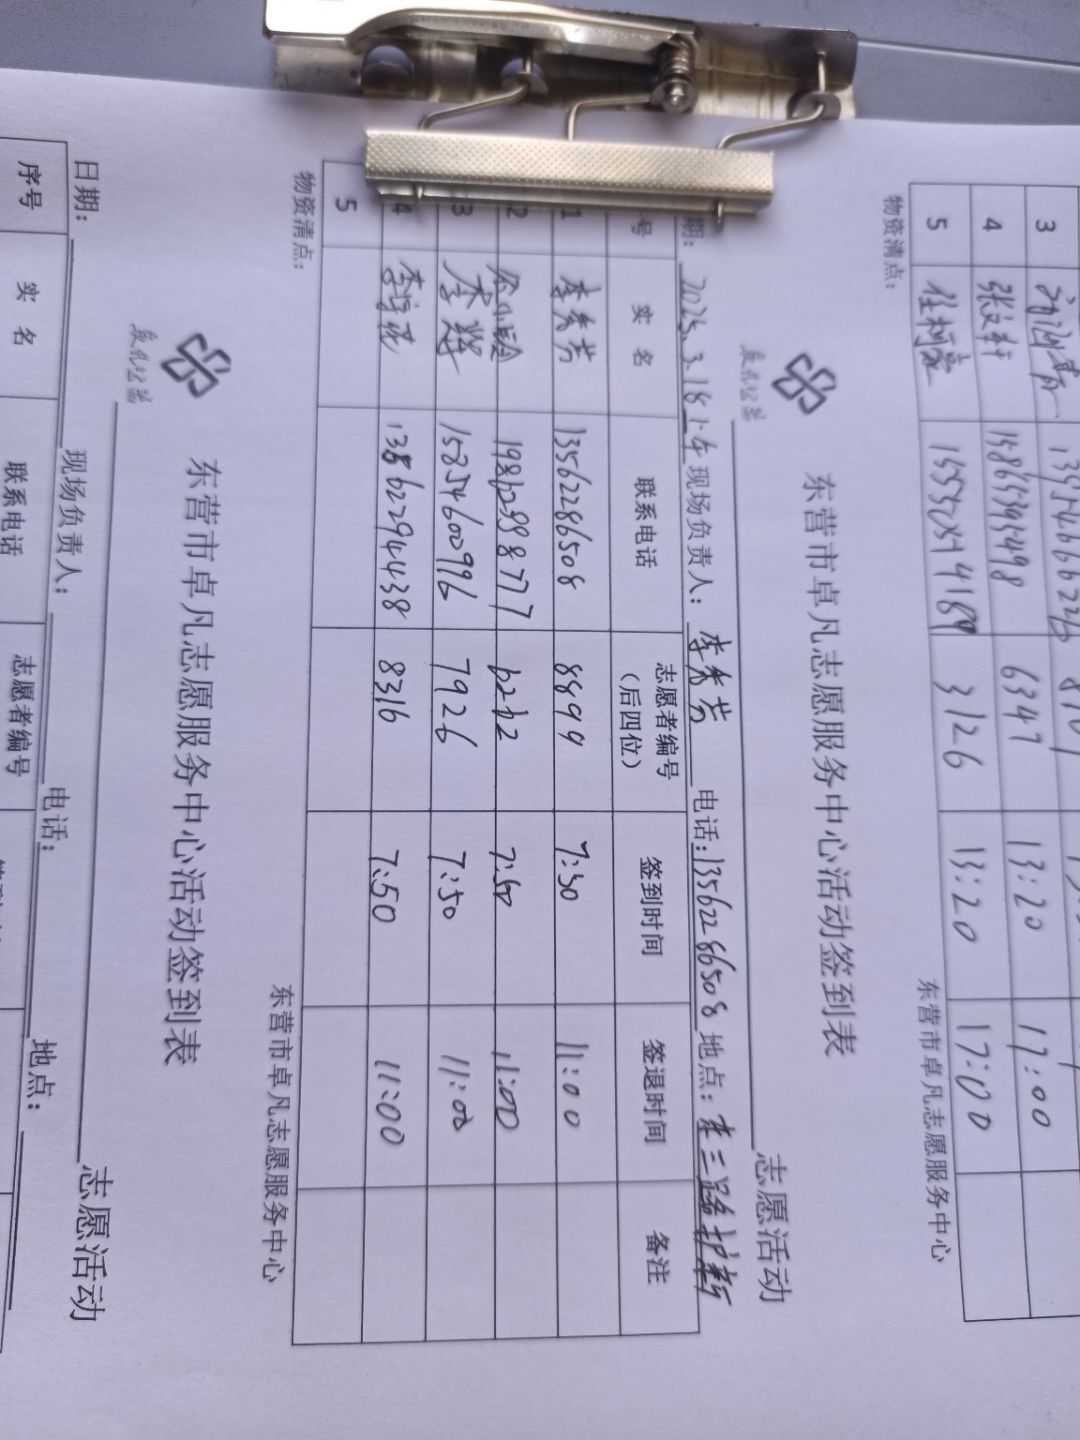 3 135 8101
4 张文轩 15865395498 6347 13:20 17:00
5 任柯家 3126 13:20 17:00
物资清点： 东营市卓凡志愿服务中心
东营市卓凡志愿服务中心活动签到表
志愿活动
期：2025.3.18上午 现场负责人：李秀芳 电话：13562286508 地点：东三路护士
号 实 名 联系电话 志愿者编号（后四位） 签到时间 签退时间 备注
1 李秀芳 13562286508 8899 7:50 11:00
2 19862998777 6262 7:50 11:00
3 李辉 15854600996 7926 7:50 11:00
4 13862294438 8316 7:50 11:00
5
物资清点： 东营市卓凡志愿服务中心
东营市卓凡志愿服务中心活动签到表
志愿活动
日期： 现场负责人： 电话： 地点：
序号 实 名 联系电话 志愿者编号